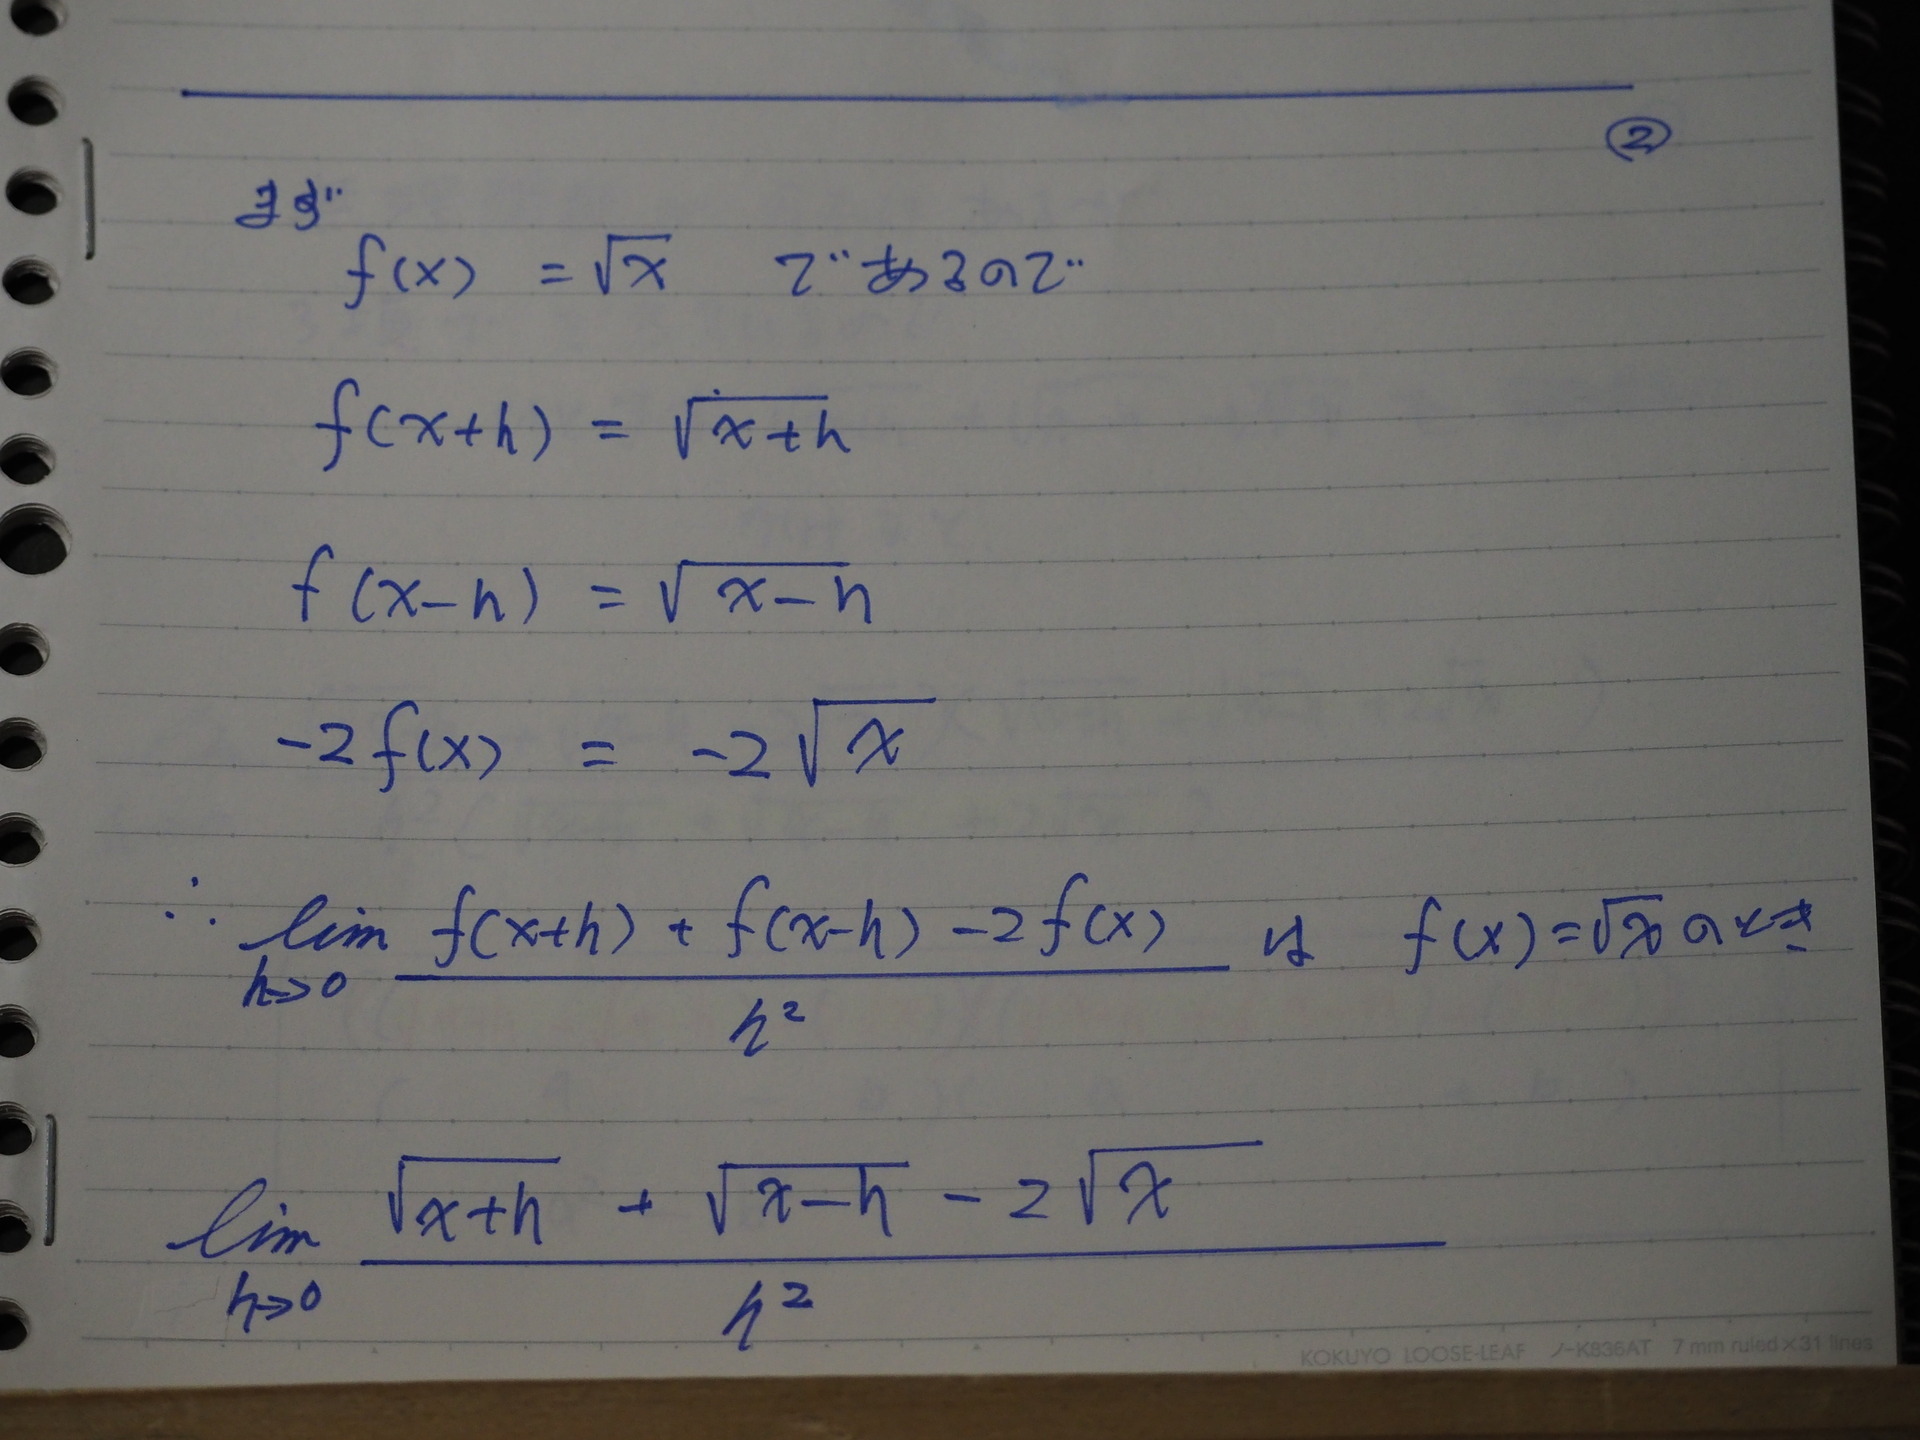 ②
まず
f(x) = √x であるので
f(x+h) = √(x+h)
f(x-h) = √(x-h)
-2f(x) = -2√x
∴ lim h→0 (f(x+h) + f(x-h) -2f(x)) / h² は f(x)=√xのとき
lim h→0 (√(x+h) + √(x-h) - 2√x) / h²
KOKUYO LOOSE-LEAF ノ-K836AT 7 mm ruled×31 lines